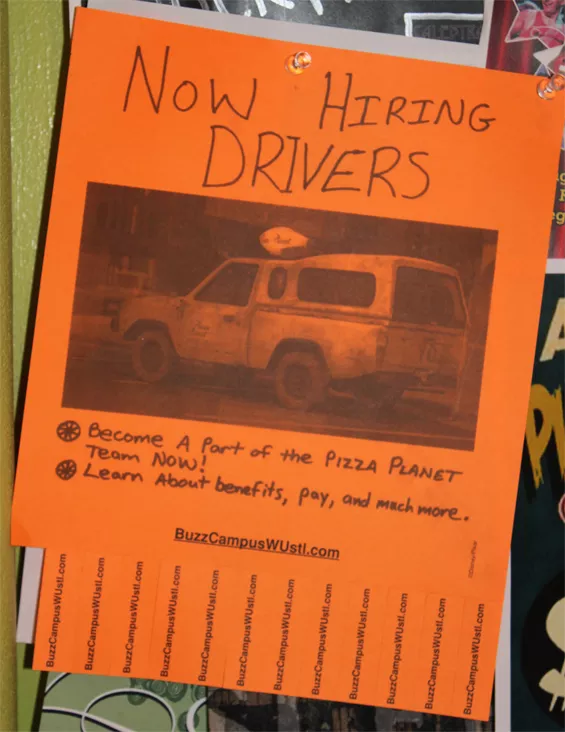 NOW HIRING
DRIVERS
Become A Part of the PIZZA PLANET
Team NOW!
Learn About benefits, pay, and much more.
BuzzCampusWUstl.com
©Disney/Pixar
BuzzCampusWUstl.com
BuzzCampusWUstl.com
BuzzCampusWUstl.com
BuzzCampusWUstl.com
BuzzCampusWUstl.com
BuzzCampusWUstl.com
BuzzCampusWUstl.com
BuzzCampusWUstl.com
BuzzCampusWUstl.com
BuzzCampusWUstl.com
BuzzCampusWUstl.com
BuzzCampusWUstl.com